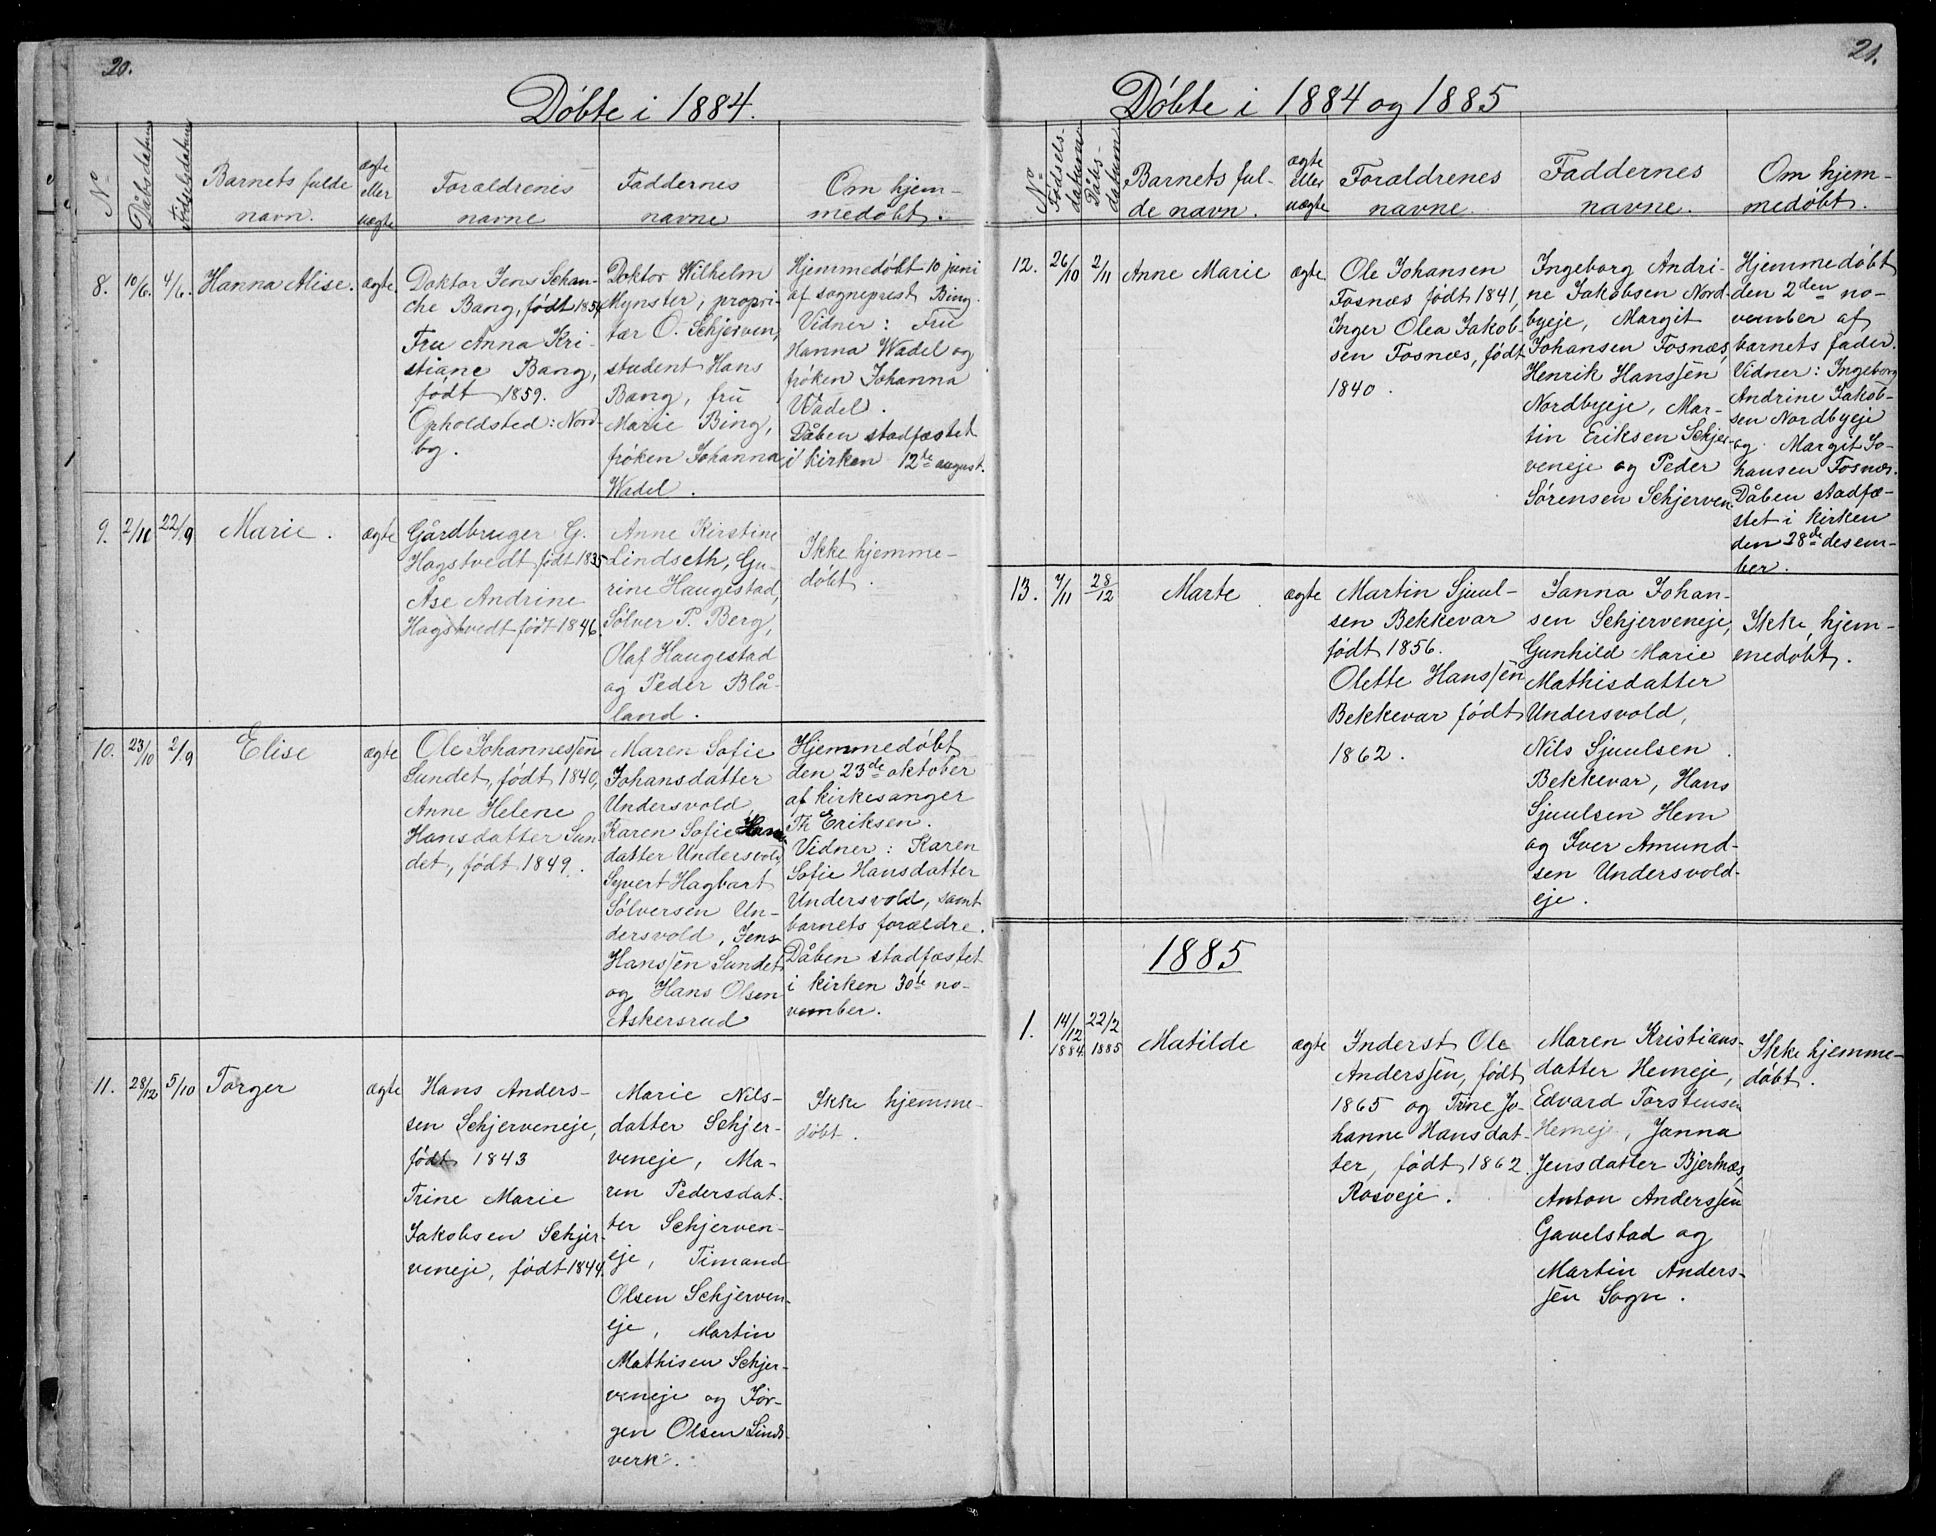 20.
Døbte i 1884.
No
Dåbsdatum
Fødselsdatum
Barnets fulde
navn.
ægte
eller
uægte
Forældrenes
navne
Faddernes
navne
Om hjem-
medøbt.
8.
10/6.
4/6.
Hanna Alise.
ægte
Doktor Jens Schan-
che Bang, født 1854
Fru Anna Kri-
stiane Bang,
født 1859.
Opholdsted: Nord-
by.
Doktor Wilhelm
Mynster, propri-
tær O. Schjerven,
student Hans
Bang, fru
Marie Bing,
frøken Johanna
Wadel.
Hjemmedøbt 10 juni
af sogneprest Bing.
Vidner: Fru
Hanna Wadel og
frøken Johanna
Wadel.
Dåben stadfæstet
i kirken 12te august.
9.
2/11
22/9
Marie.
ægte
Gårdbruger G.
Hagstvedt født 1835
Åse Andrine
Hagstvedt født 1846.
Anne Kirstine
Lindseth, Gu-
rine Haugestad,
Sølver P. Berg,
Olaf Haugestad
og Peder Blå-
land.
Ikke hjemme-
døbt.
10.
23/10
2/9
Elise
ægte
Ole Johannessen
Sundet, født 1840,
Anne Helene
Hansdatter Sun-
det, født 1849.
Maren Sofie
Johansdatter
Undersvold,
Karen Sofie Hans
datter Undersvold,
Syvert Hagbart
Sølversen Un-
dersvold, Jens
Hanssen Sundet
og Hans Olsen
Askersrud
Hjemmedøbt
den 23de oktober
af kirkesanger
Th Eriksen.
Vidner: Karen
Sofie Hansdatter
Undersvold, samt
barnets forældre.
Dåben stadfæstet
i kirken 30te no-
vember.
11.
28/12
5/10
Torger
ægte
Hans Anders-
sen Schjerveneje,
født 1843
Trine Marie
Jakobsen Schjer-
veneje, født 1844.
Marie Nils-
datter Schjer-
veneje, Ma-
ren Pedersdat-
ter Schjerven-
eje, Timand
Olsen Schjerven-
eje, Martin
Mathisen Schjer-
veneje og Jør-
gen Olsen Linds-
verk.
Ikke hjemme-
døbt.
21.
Døbte i 1884 og 1885
No
Fødsels-
datum
Dåbs-
datum
Barnets ful-
de navn.
ægte
eller
uægte
Forældrenes
navne.
Faddernes
navne.
Om hjem-
medøbt.
12.
26/10
2/11
Anne Marie
ægte
Ole Johansen
Fosnæs født 1841,
Inger Olea Jakob-
sen Fosnæs, født
1840.
Ingeborg Andri-
ne Jakobsen Nord
byeje, Margit
Johansen Fosnæs,
Henrik Hanssen
Nordbyeje, Mar-
tin Eriksen Schjer-
veneje og Peder
Sørensen Schjerven.
Hjemmedøbt
den 2den no-
vember af
barnets fader.
Vidner: Ingeborg
Andrine Jakob-
sen Nordbyeje
og Margit Jo-
hansen Fosnæs.
Dåben stadfæ-
stet i kirken
den 28de desem-
ber.
13.
7/11
28/12
Marte
ægte
Martin Sjuul-
sen Bekkevar
født 1856.
Olette Hanssen
Bekkevar født
1862.
Janna Johan-
sen Schjerveneje,
Gunhild Marie
Mathisdatter
Undersvold,
Nils Sjuulsen
Bekkevar, Hans
Sjuulsen Hem
og Iver Amund-
sen Undersvold-
eje.
Ikke hjem-
medøbt.
1885
1.
14/12
1884
22/2
1885
Matilde
ægte
Inderst Ole
Anderssen, født
1865 og Trine Jo-
hanne Hansdat-
ter, født 1862.
Rosveje.
Maren Kristians-
datter Hemeje,
Edvard Torstensen
Hemeje, Janna
Jensdatter Bjertnæs,
Anton Anderssen
Gavelstad og
Martin Anders-
sen Sogn.
Ikke hjemme-
døbt.